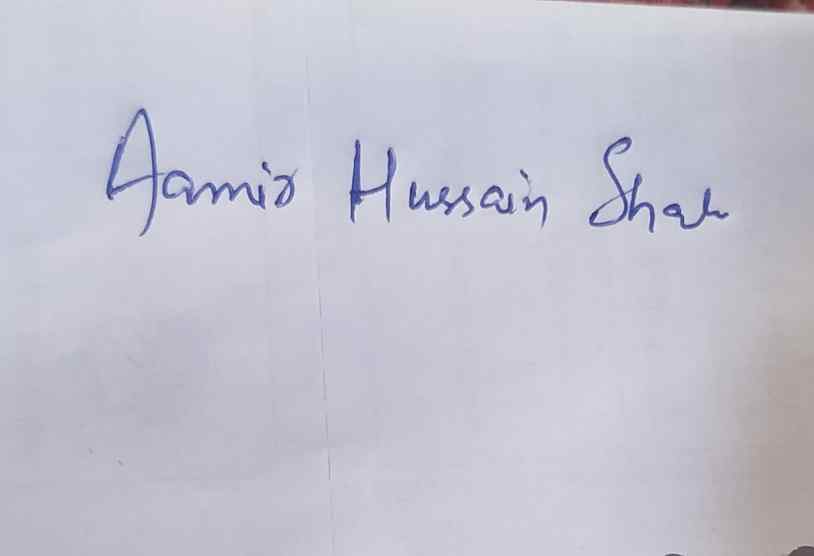 Aamir Hussain Shah